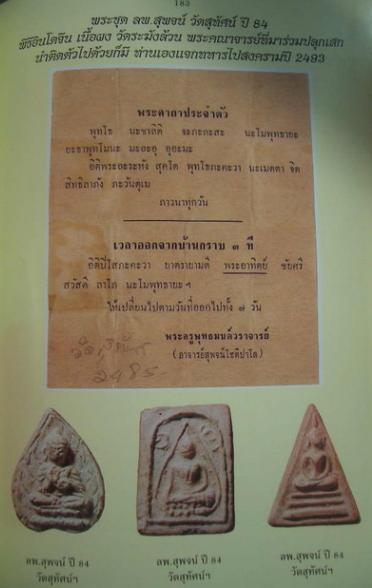 183
พระชุด ลพ.สุพจน์ วัดสุทัศน์ ปี 84
พิธีอินโดจีน เนื้อผง วัดระฆังล้วน พระคณาจารย์ที่มาร่วมปลุกเสก
นำติดตัวไปด้วยก็มี ท่านเองแจกทหารไปสงครามปี 2493
พระคาถาประจำตัว
พุทโธ นะชาลิติ จะภะกะสะ นะโมพุทธายะ
ยะธาพุทโมนะ มะอะอุ อุอะมะ
อิติพระอะระหัง สุคโต พุทโธภะคะวา นะเมตตา จิต
สิทธิลาภัง ภะวันตุเม
ภาวนาทุกวัน
เวลาออกจากบ้านกราบ ๓ ที
อิติปิโสภะคะวา ยาตรายามดี พระอาทิตย์ ชัยศรี
สวัสดี ลาโภ นะโมพุทธายะ ฯ
ให้เปลี่ยนไปตามวันที่ออกไปทั้ง ๗ วัน
พระครูพุทธมนต์วราจารย์
(อาจารย์สุพจน์โชติปาโล)
2485
ลพ.สุพจน์ ปี 84
วัดสุทัศน์ฯ
ลพ.สุพจน์ ปี 84
วัดสุทัศน์ฯ
ลพ.สุพจน์ ปี 84
วัดสุทัศน์ฯ